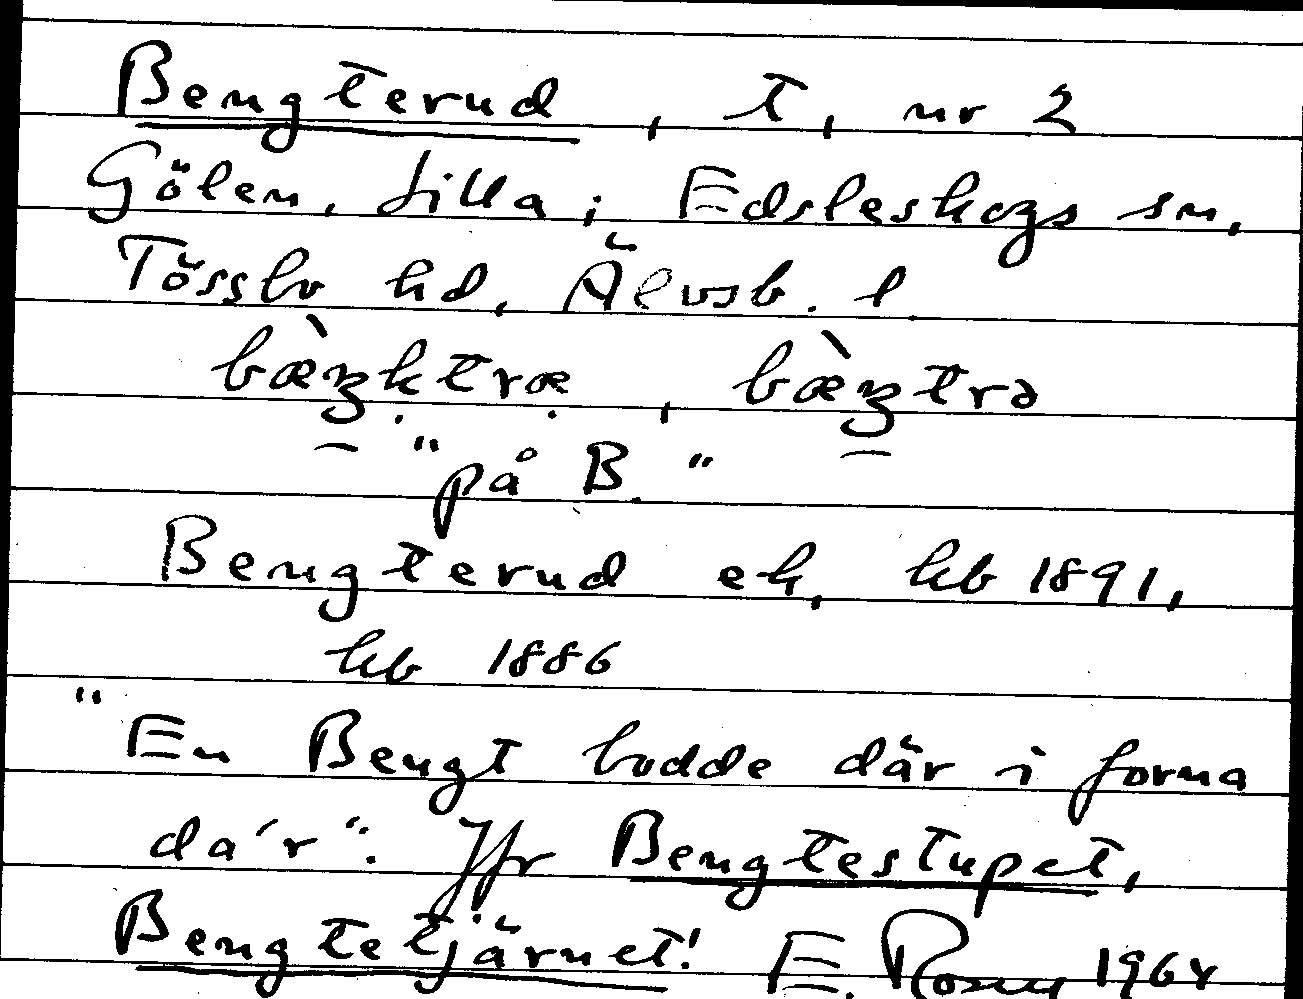 Bengterud, t, nr 2
Gölen, Lilla; Edsleskogs sn,
Tössbo hd, Älvsb. l
bæ̀ŋktræ, bæ̀ŋtrə
"på B."
Bengterud ek, hb 1891,
hb 1886
"En Bengt bodde där i forna
da'r". Jfr Bengtestupet,
Bengtetjärnet! E. 1964